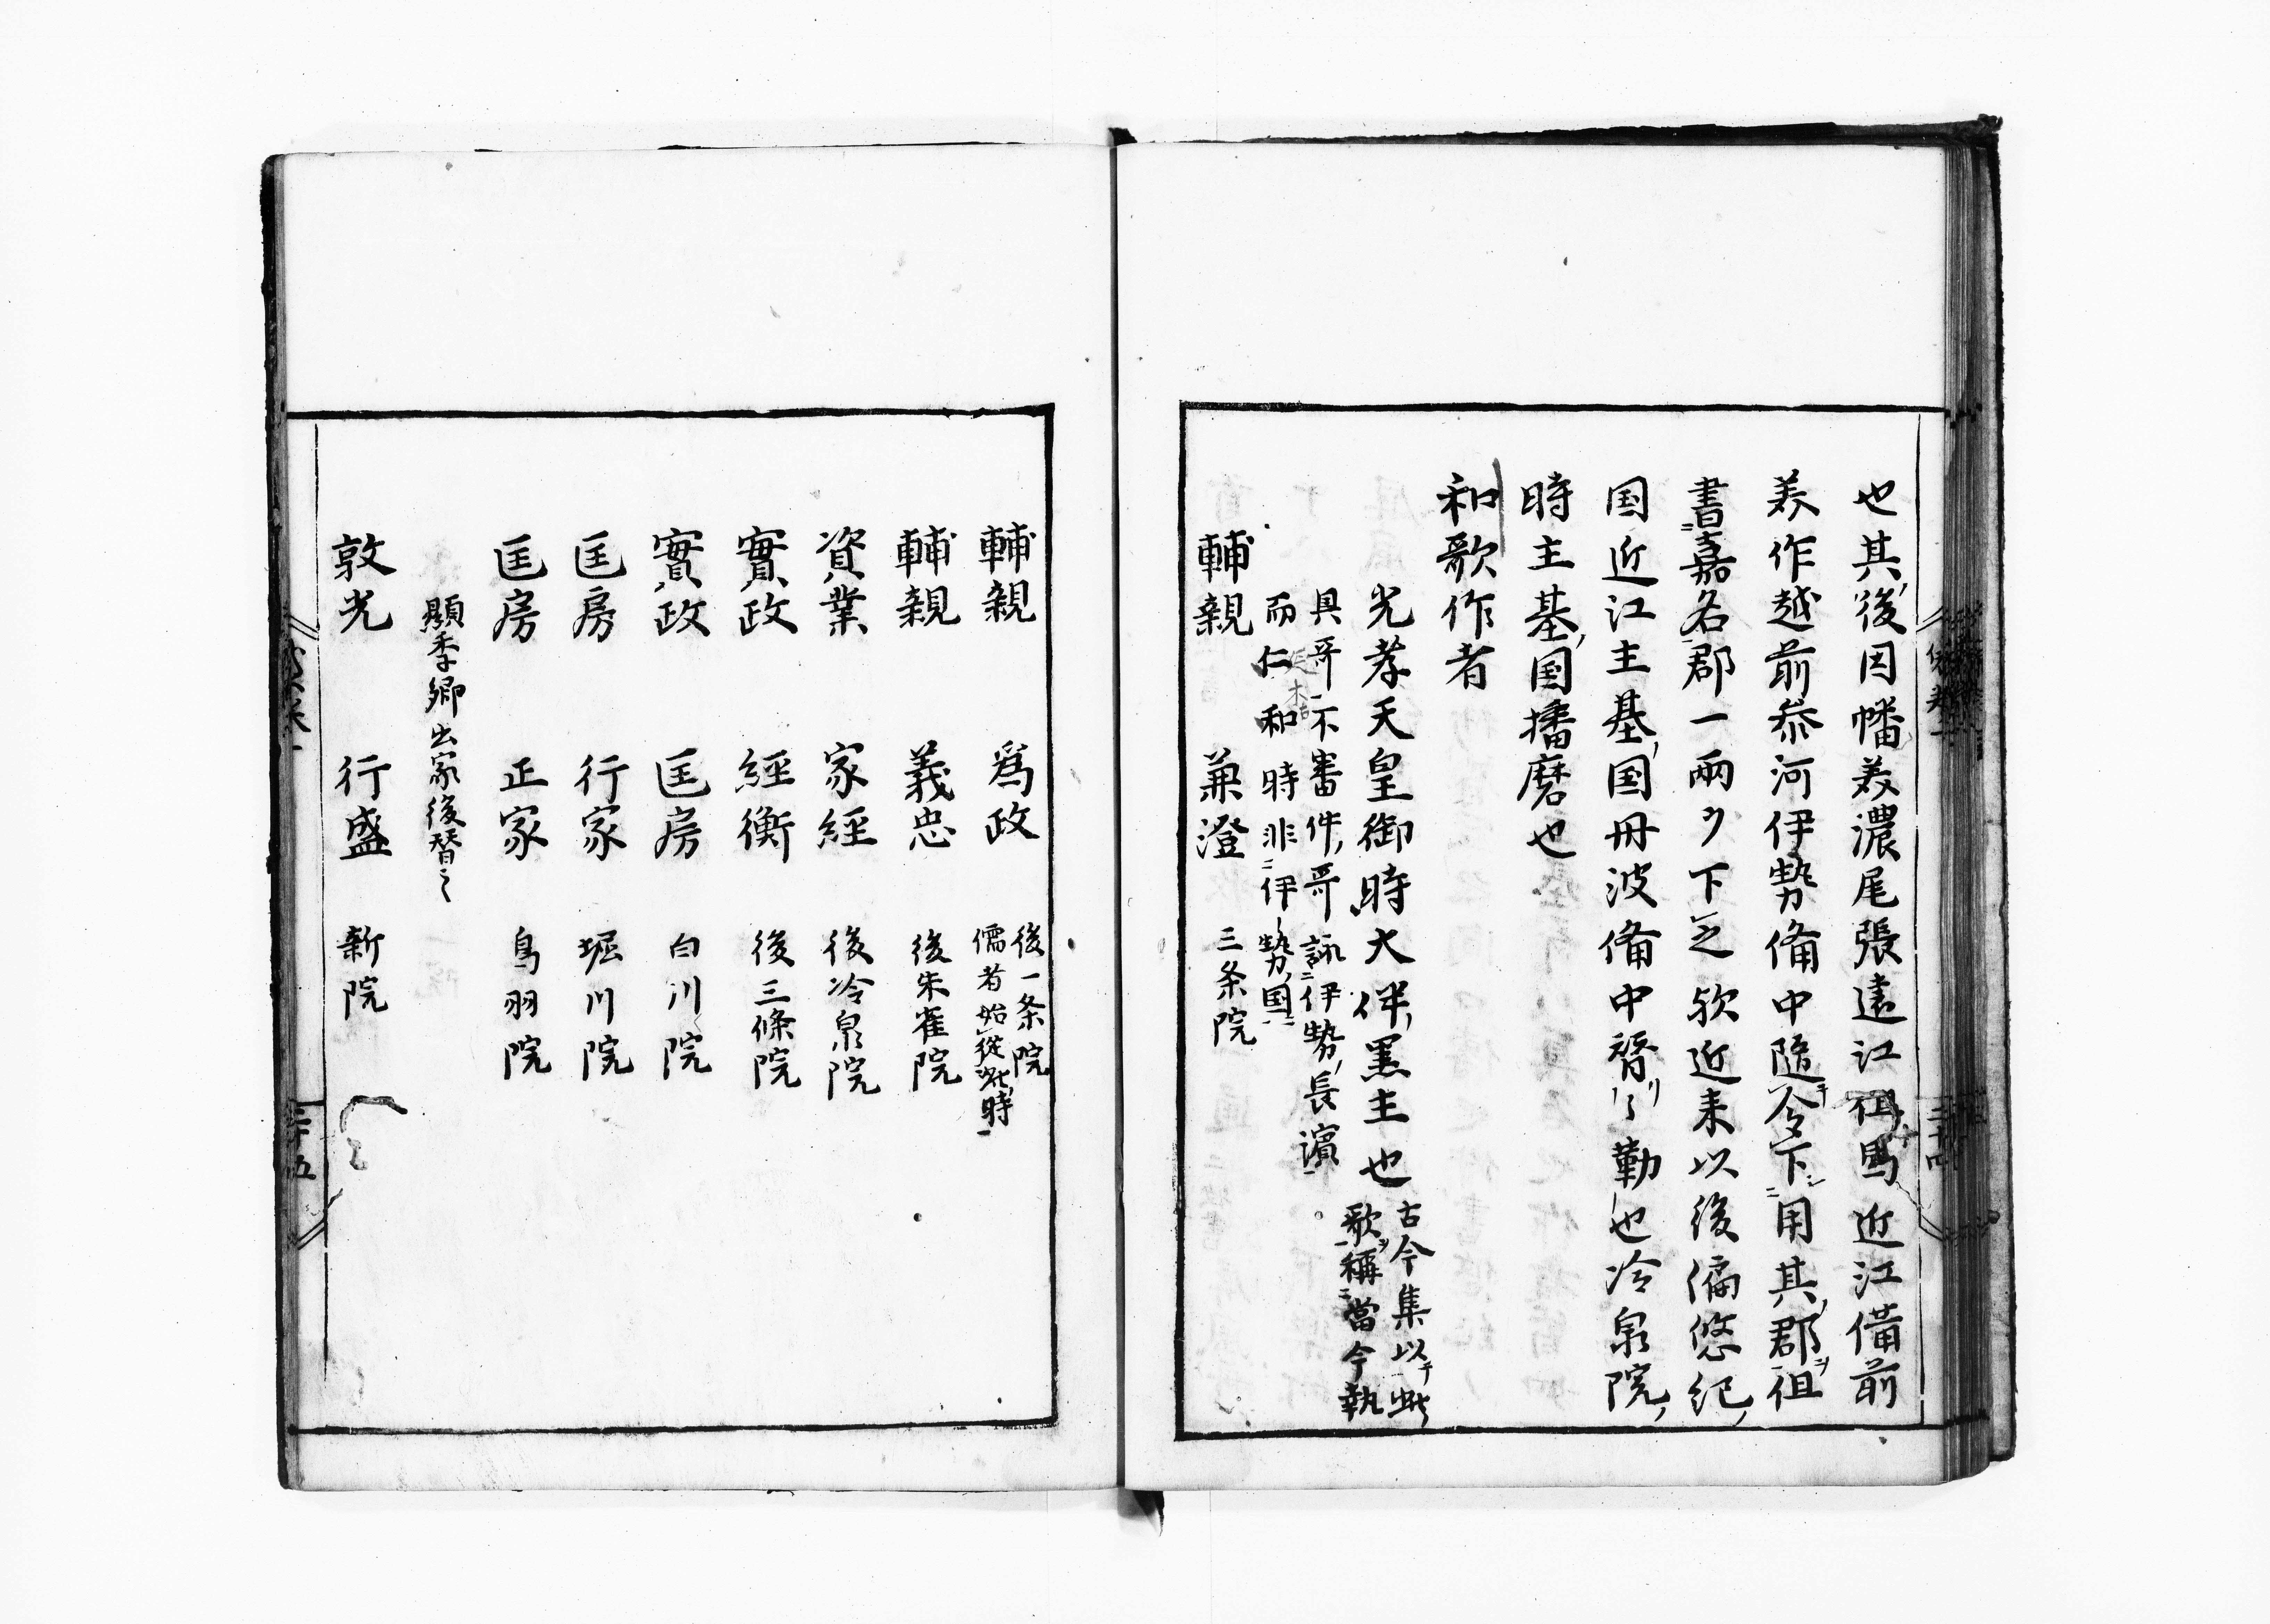 也其後因幡美濃尾張遠江但馬近江備前
美作越前叅河伊勢備中随令下用其郡但
書嘉名郡一兩ヲ下之歟近来以後偏悠紀
国近江主基国丹波備中替〻勤也冷泉院
時主基国播磨也
和歌作者
光孝天皇御時大伴黒主也
古今集以此
歌稱當今執
具哥不審件哥詠伊勢長濱
而仁和時非伊勢国
輔親 兼澄 三条院
輔親 爲政 後一条院
儒者始従此時
輔親 義忠 後朱雀院
資業 家經 後冷泉院
實政 經衡 後三條院
實政 匡房 白川院
匡房 行家 堀川院
匡房 正家 鳥羽院
顕季卿出家後替之
敦光 行盛 新院